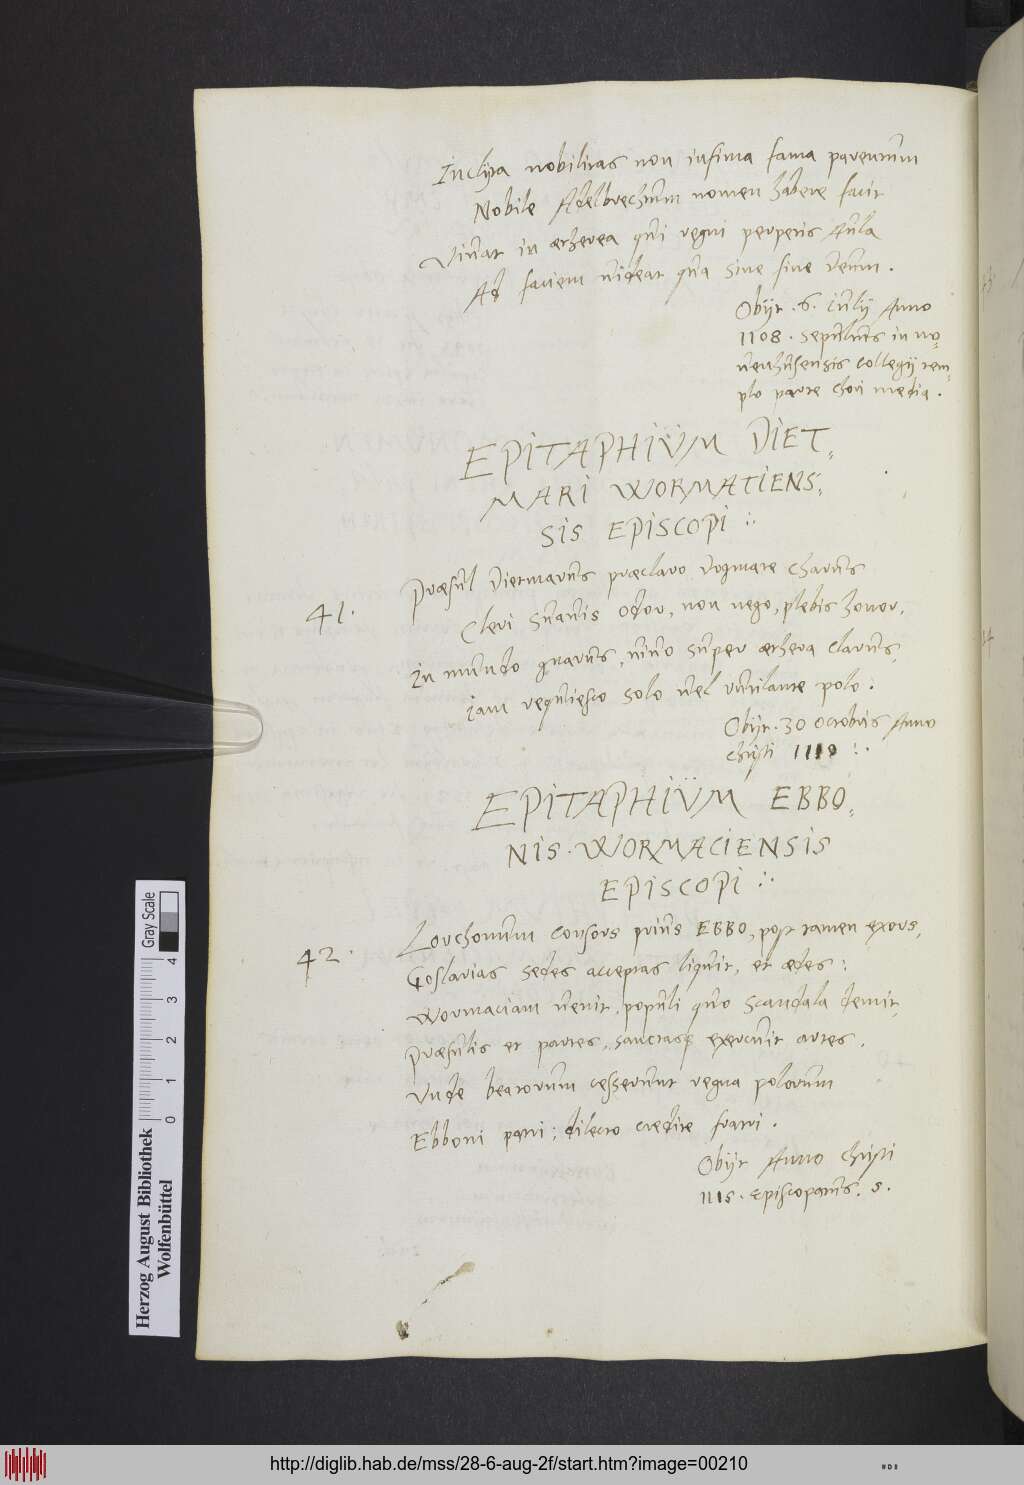 Inclyta nobilitas non infima fama parentum
Nobile Adelbrechtum nomen habere facit
Viuat in ætherea qui regni perpetis Aula
Ad faciem uideat qua sine fine deum.
Obijt . 6. iulij Anno
1108 . sepultus in no=
uenhusensis collegij tem=
plo parte chori media .
EPITAPHIUM DIET=
MARI WORMATIENS=
SIS EPISCOPI :·
41. Præsul Dietmarus præclaro dogmate charus
Cleri suauis odor, non nego, plebis honor,
In mundo gnarus, uiuo super æthera clarus,
iam requiesco solo uel rutilante polo :
Obijt . 30 octobris Anno
christi 1112 :.
EPITAPHIUM EBBO=
NIS . WORMACIENSIS
EPISCOPI :·
42. consors prius EBBO, post tamen exors,
Goslarias sedes acceptas liquit, et ædes :
Wormaciam uenit, populi quo scandala demit,
Præsulis et partes, sanctasq exercuit artes .
Vnde beatorum cesserunt regna polorum
Ebboni patri ; dilecto credite fratri .
Obijt Anno christi
1115 . episcopatus . 5 .
Herzog August Bibliothek
Wolfenbüttel
0 1 2 3 4
Gray Scale
http://diglib.hab.de/mss/28-6-aug-2f/start.htm?image=00210